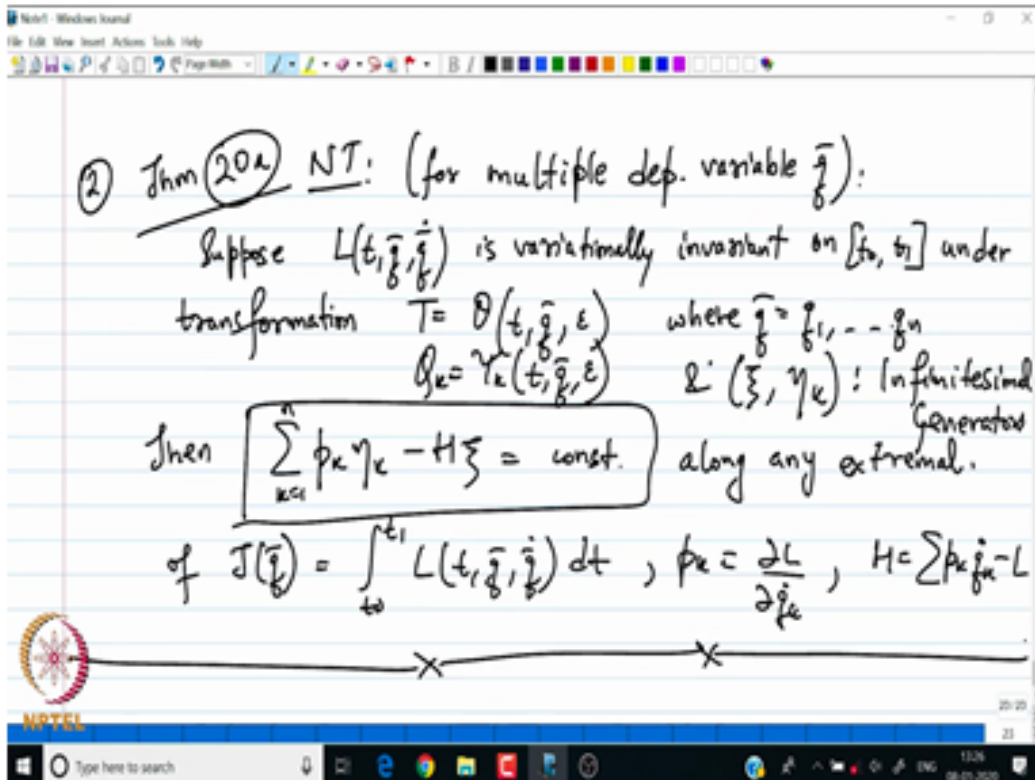 Note1 - Windows Journal
File Edit View Insert Actions Tools Help
Page Width
B I
② Thm 20a NT: (for multiple dep. variable q̄):
Suppose L(t, q̄, q̄̇) is variationally invariant on [t₀, t₁] under
transformation T = θ(t, q̄, ε) where q̄ = q₁, ... qₙ
Qₖ = Ψₖ(t, q̄, ε) & (ξ, ηₖ): Infinitesimal
Generators
Then ∑ₖ₌₁ⁿ pₖηₖ - Hξ = const. along any extremal.
of J(q̄) = ∫ₜ₀ᵗ¹ L(t, q̄, q̄̇) dt , pₖ = ∂L/∂q̇ₖ , H = ∑pₖq̇ₖ - L
NPTEL
23
Type here to search
ENG
13:26